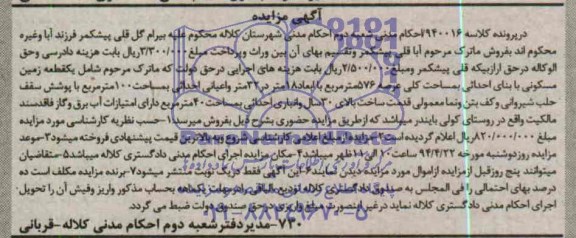 آگهی مزایده
درپرونده کلاسه ۹۴۰۰۱۶/احکام مدنی شعبه دوم احکام مدنی شهرستان کلاله محکوم علیه بیرام گل قلی پیشکمر فرزند آبا وغیره
محکوم اند بفروش ماترک مرحوم آبا قلی پیشکمر وتقسیم بهای آن بین وراث وپرداخت مبلغ ۳/۳۰۰/۰۰۰ریال بابت هزینه دادرسی وحق
الوکاله درحق ارازبیکه قلی پیشکمر ومبلغ ۲/۵۰۰/۰۰۰ریال بابت هزینه های اجرایی درحق دولت که ماترک مرحوم شامل یکقطعه زمین
مسکونی با بنای احداثی بمساحت کلی عرصه ۵۷۶مترمربع با ابعاد۱۸متر در۳۲متر واعیانی احداثی بمساحت۱۰۰مترمربع با پوشش سقف
حلب شیروانی وکف بتن ونما معمولی قدمت ساخت بالای ۳۰سال وانباری احداثی بمساحت ۴۰مترمربع دارای امتیازات آب برق وگاز فاقدسند
مالکیت واقع در روستای کولی بایندر میباشد که ازطریق مزایده حضوری بشرح ذیل بفروش میرسد ۱-حسب نظریه کارشناسی مورد مزایده
مبلغ ۸۲۰/۰۰۰/۰۰۰ریال اعلام گردیده است ۲-مزایده ازمبلغ اعلامی کارشناسی شروع وبه بالاترین قیمت پیشنهادی فروخته میشود۳-موعد
مزایده روزدوشنبه مورخه ۹۴/۴/۲۲ ساعت ۱۰ الی ۱۱ظهر میباشد۴-مکان مزایده اجرای احکام مدنی دادگستری کلاله میباشد۵-متقاضیان
میتوانند پنج روزقبل ازمزایده ازاموال مورد مزایده دیدن نمایند۶-این آگهی فقط دریک نوبت منتشر میشود۷-برنده مزایده مکلف است ده
درصد بهای احتمالی را فی المجلس به صندوق دادگستری کلاله تودیع مابالقی را درمهلت یکماهه بحساب مذکور واریز وفیش آن را تحویل
اجرای احکام مدنی دادگستری کلاله نماید درغیر اینصورت مبلغ واریزی درحق صندوق دولت ضبط می گردد.
۷۳۰-مدیردفترشعبه دوم احکام مدنی کلاله-قربانی
۰۲۱-۸۸۳۴۹۶۷۰-۵